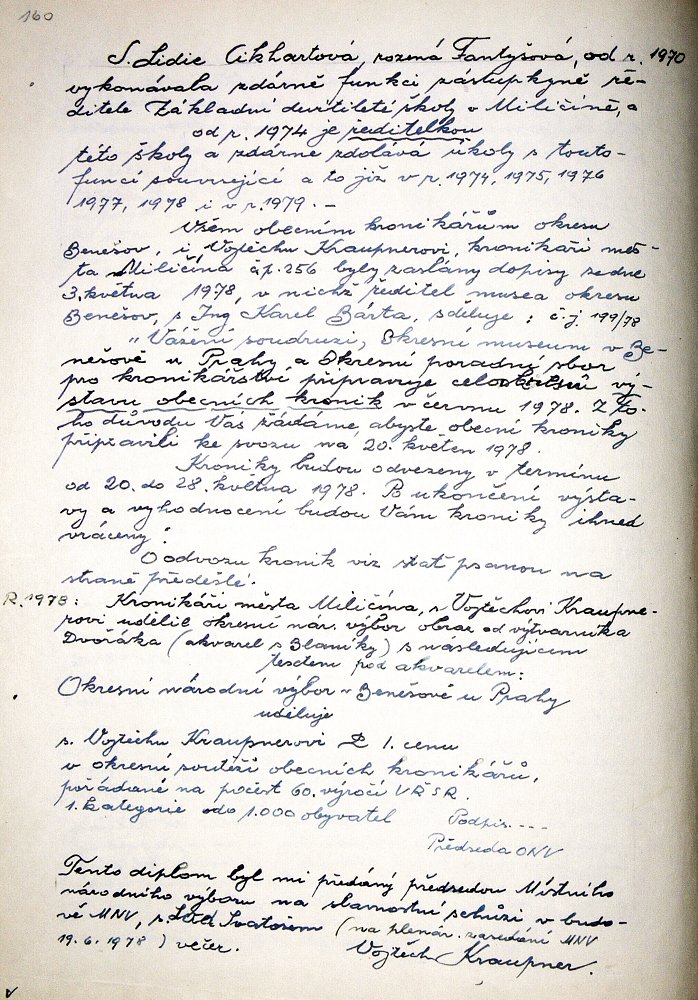 160
S. Lidie Cikhartová, rozená Fantyšová, od r. 1970
vykonávala zdárně funkci zástupkyně ře-
ditele Základní devítileté školy v Miličíně, a
od r. 1974 je ředitelkou
této školy a zdárně zdolává úkoly s touto
funcí související a to již v r. 1974, 1975, 1976
1977, 1978 i v r. 1979. -
Všem obecním kronikářům okresu
Benešov, i Vojtěchu Kraupnerovi, kronikáři měs-
ta Miličína čp. 256 byly zaslány dopisy ze dne
3. května 1978, v nichž ředitel musea okresu
Benešov, s Ing Karel Bárta, sděluje: č.j. 199/78
"Vážení soudruzi, Okresní museum v Be-
nešově u Prahy a Okresní poradní sbor
pro kronikářství připravuje vý-
stavu obecních kronik v červnu 1978. Z to-
ho důvodu Vás žádáme, abyste obecní kroniky
připravili ke svozu na 20. květen 1978.
Kroniky budou odvezeny v termínu
od 20. do 28. května 1978. Po ukončení výsta-
vy a vyhodnocení budou Vám kroniky ihned
vráceny!
O odvozu kronik viz stať psanou na
straně předešlé.
R. 1978: Kronikáři města Miličína, s Vojtěchovi Kraupne-
rovi udělil okresní nár. výbor obraz od výtvarníka
Dvořáka (akvarel s Blaníky) s následujícím
textem pod akvarelem:
Okresní národní výbor v Benešově u Prahy
uděluje
s. Vojtěchu Kraupnerovi 1. cenu
v okresní soutěži obecních kronikářů,
pořádané na počest 60. výročí VŘSR.
1. kategorie do 1.000 obyvatel Podpis ----
Předseda ONV
Tento diplom byl mi předaný předsedou Místního
národního výboru na slavnostní schůzi v budo-
vě MNV, s. Svatošem (na plenár. zasedání MNV
19. 6. 1978) večer. Vojtěch Kraupner.